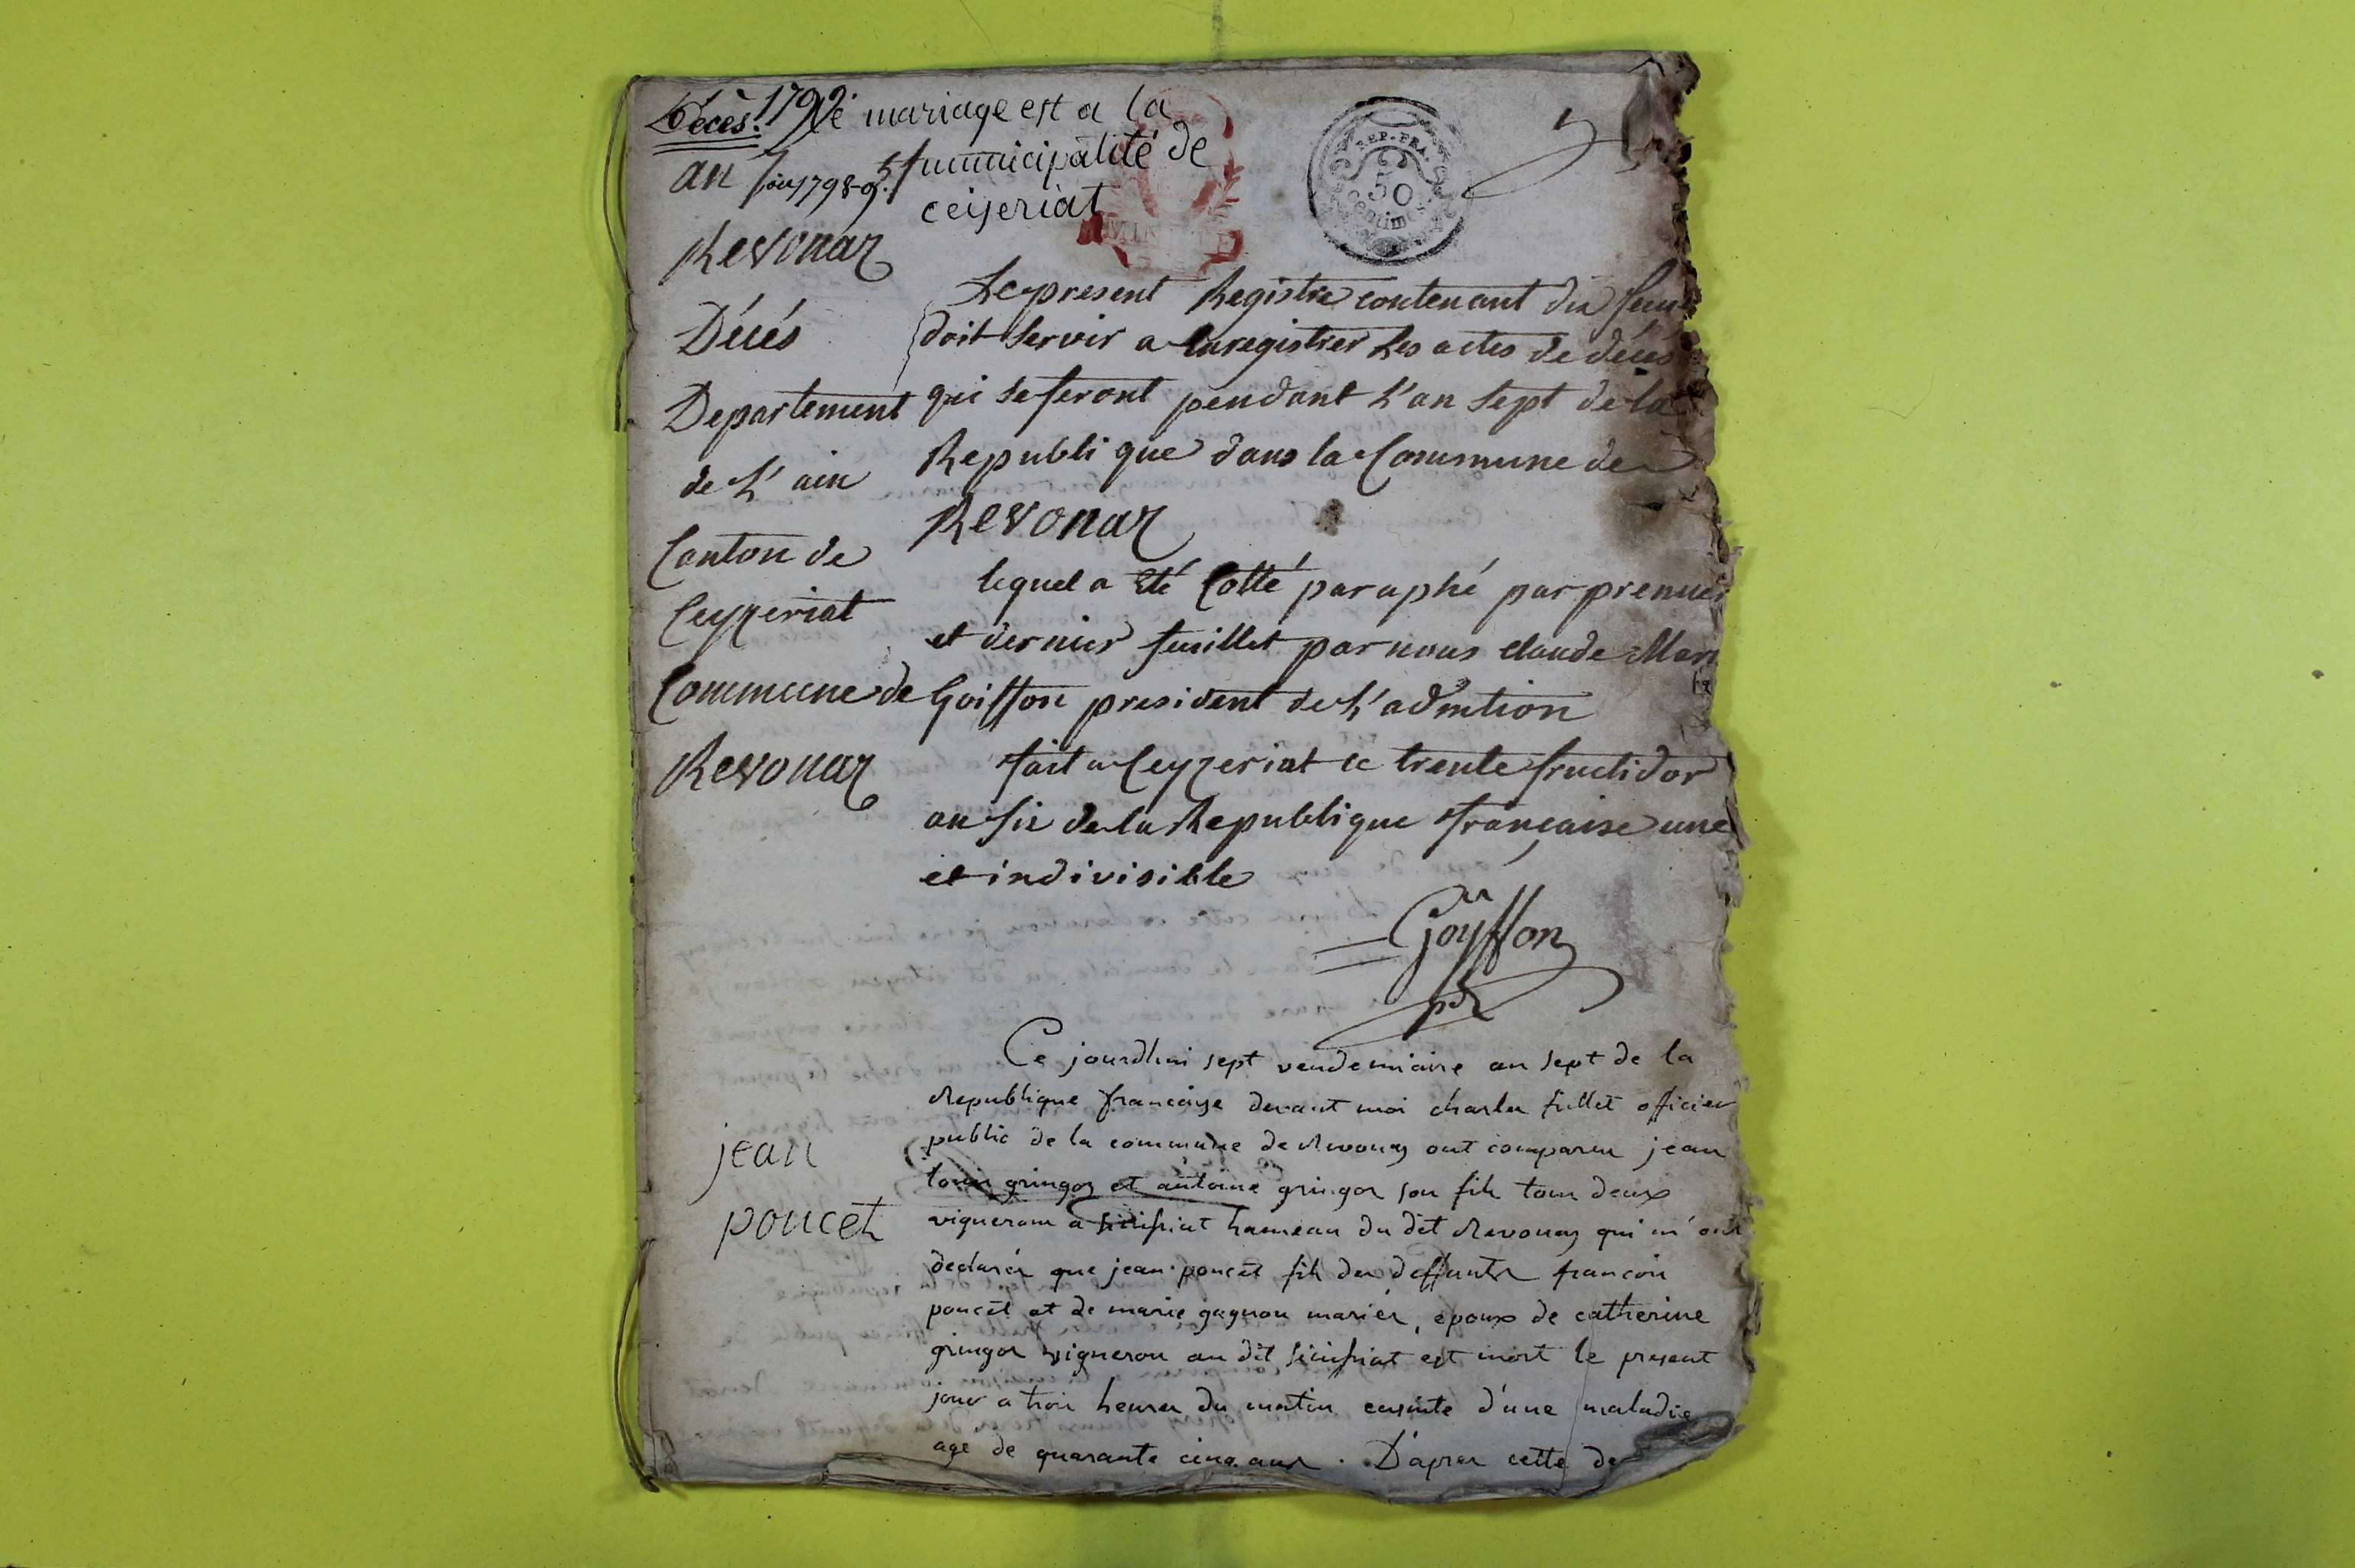 Décès. 1792
Le mariage est a la
municipalité de
ceijeriat
an 1798-9.
REP. FRA.
50
centim
MIN
Revonaz
Décés
Departement
de L'ain
Canton de
Ceyzeriat
Commune de
Revonaz
Le present Registre contenant dix feui
doit Servir a Enregistrer Les actes de décés
qui se feront pendant L'an Sept de la
Republique dans la Commune de
Revonaz
lequel a Eté Cotté paraphé par premier
et dernier feuillet par nous claude Mari
Goiffon president de L'admtion
fait a Ceyzeriat le trente fructidor
an six de la Republique française une
et indivisible
Goÿffon
pdt
jean
poncet
Ce jourdhui sept vendemiaire an sept de la
Republique francaise devant moi charles fullet officier
public de la commune de Revonaz ont comparu jean
louis gringoz et antoine gringoz son fils tous deux
vignerons a hameau du dit Revonaz qui m'ont
declarés que jean poncet fils des deffunts francois
poncet et de marie gagnon mariés, epoux de catherine
gringoz vigneron au dit est mort le present
jour a trois heures du matin ensuite d'une maladie
age de quarante cinq ans. D'apres cette de